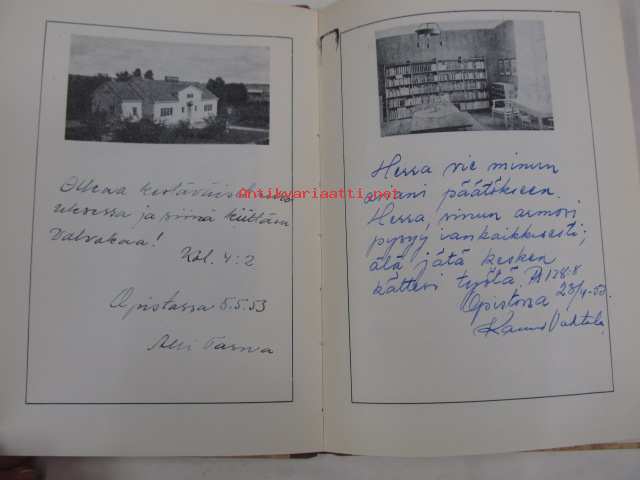 Olkaa kestäväiset
rukouksessa ja siinä kiittäen
valvokaa!
Kol. 4:2
Opistossa 5.5.53
Alli
Antikvariaatti.net
Herra vie minun
asiani päätökseen.
Herra, sinun armosi
pysyy iankaikkisesti;
älä jätä kesken
kättesi työtä. Ps 138:8
Opistossa 28/4-53.